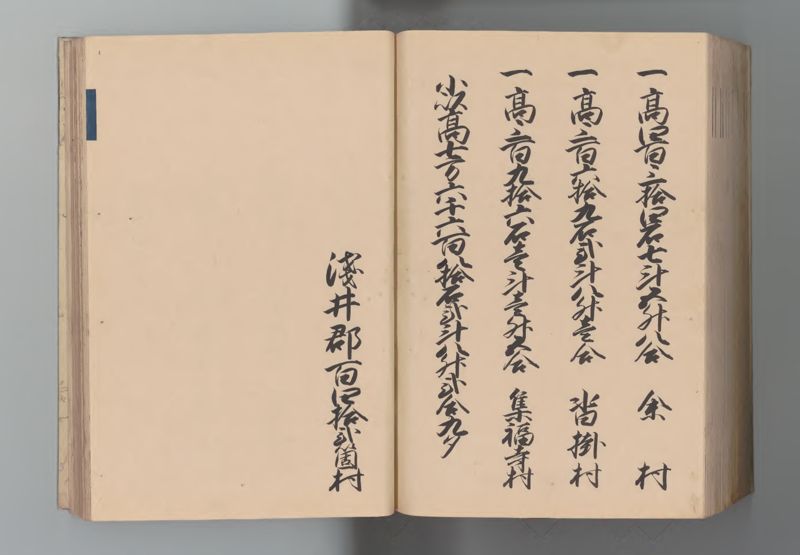 一高四百三拾四石七斗五升八合　余村
一高三百六拾九石弐斗八升壱合　沓掛村
一高三百九拾六石壱斗壱升五合　集福寺村
小以高七万六千六百八拾石弐斗八升弐合九夕
淺井郡百四拾弐箇村